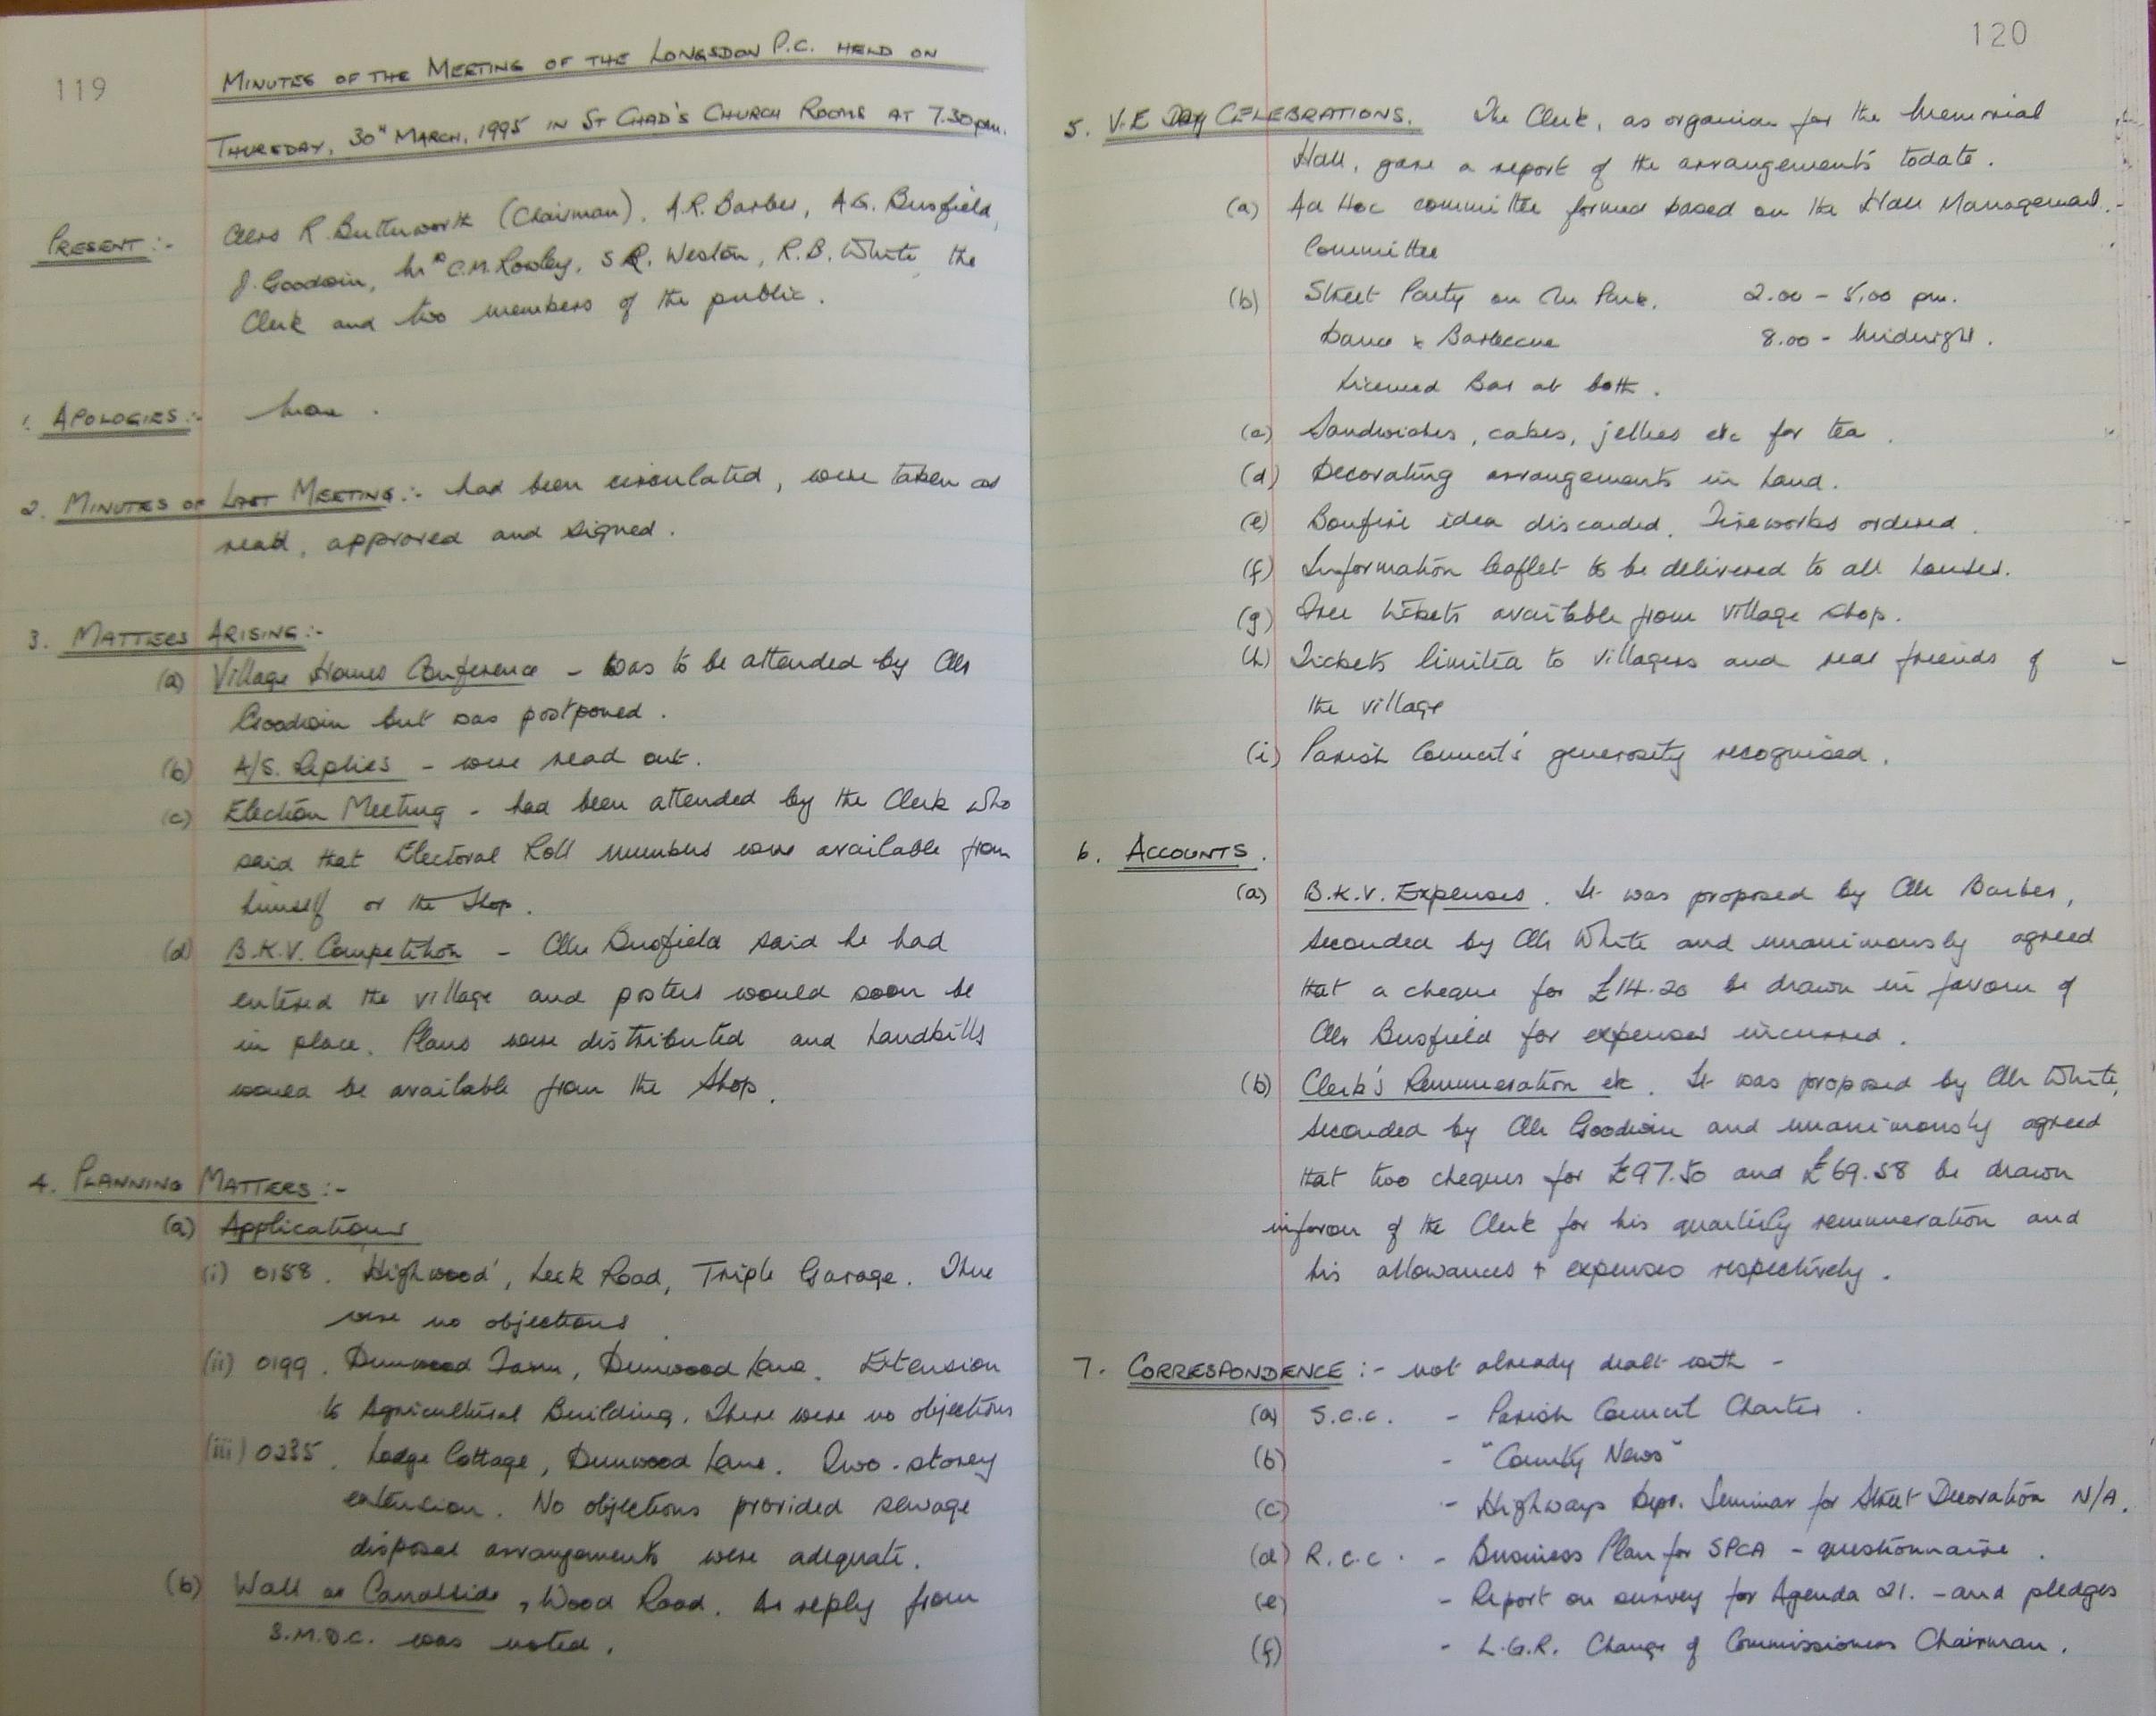 119
MINUTES OF THE MEETING OF THE LONGSDON P.C. HELD ON
THURSDAY, 30th MARCH, 1995 IN ST CHAD'S CHURCH ROOMS AT 7.30pm.
PRESENT :- Cllrs R. Butterworth (Chairman), A.R. Barber, A.G. Busfield,
J. Goodwin, Mrs C.M. Rowley, S.R. Weston, R.B. White, the
Clerk and two members of the public.
1. APOLOGIES :- None.
2. MINUTES OF LAST MEETING :- had been circulated, were taken as
read, approved and signed.
3. MATTERS ARISING :-
(a) Village Homes Conference - was to be attended by Cllr
Goodwin but was postponed.
(b) A/S. Replies - were read out.
(c) Election Meeting - had been attended by the Clerk who
said that Electoral Roll numbers were available from
himself or the Shop.
(d) B.K.V. Competition - Cllr Busfield said he had
entered the village and posters would soon be
in place. Plans were distributed and handbills
would be available from the Shop.
4. PLANNING MATTERS :-
(a) Applications
(i) 0158. 'Highwood', Leek Road, Triple Garage. There
were no objections
(ii) 0199. Dunwood Farm, Dunwood Lane. Extension
to Agricultural Building. There were no objections
(iii) 0235. Lodge Cottage, Dunwood Lane. Two-storey
extension. No objections provided sewage
disposal arrangements were adequate.
(b) Wall at Canalside, Wood Road. A reply from
S.M.D.C. was noted.
120
5. V.E DAY CELEBRATIONS. The Clerk, as organiser for the Memorial
Hall, gave a report of the arrangements todate.
(a) Ad Hoc committee formed based on the Hall Management
Committee
(b) Street Party on the Park. 2.00 - 5.00 pm.
Dance & Barbecue 8.00 - Midnight.
Licensed Bar at both.
(c) Sandwiches, cakes, jellies etc for tea.
(d) Decorating arrangements in hand.
(e) Bonfire idea discarded. Fireworks ordered.
(f) Information leaflet to be delivered to all houses.
(g) Free tickets available from village shop.
(h) Tickets limited to villagers and real friends of
the village
(i) Parish Council's generosity recognised.
6. ACCOUNTS.
(a) B.K.V. Expenses. It was proposed by Cllr Barber,
seconded by Cllr White and unanimously agreed
that a cheque for £14.20 be drawn in favour of
Cllr Busfield for expenses incurred.
(b) Clerk's Remuneration etc. It was proposed by Cllr White,
seconded by Cllr Goodwin and unanimously agreed
that two cheques for £97.50 and £69.58 be drawn
in favour of the Clerk for his quarterly remuneration and
his allowances & expenses respectively.
7. CORRESPONDENCE :- not already dealt with -
(a) S.C.C. - Parish Council Charter.
(b) - "County News"
(c) - Highways Dept. Seminar for Street Decoration N/A.
(d) R.C.C. - Business Plan for SPCA - questionnaire.
(e) - Report on survey for Agenda 21. - and pledges
(f) - L.G.R. Change of Commissioners Chairman.